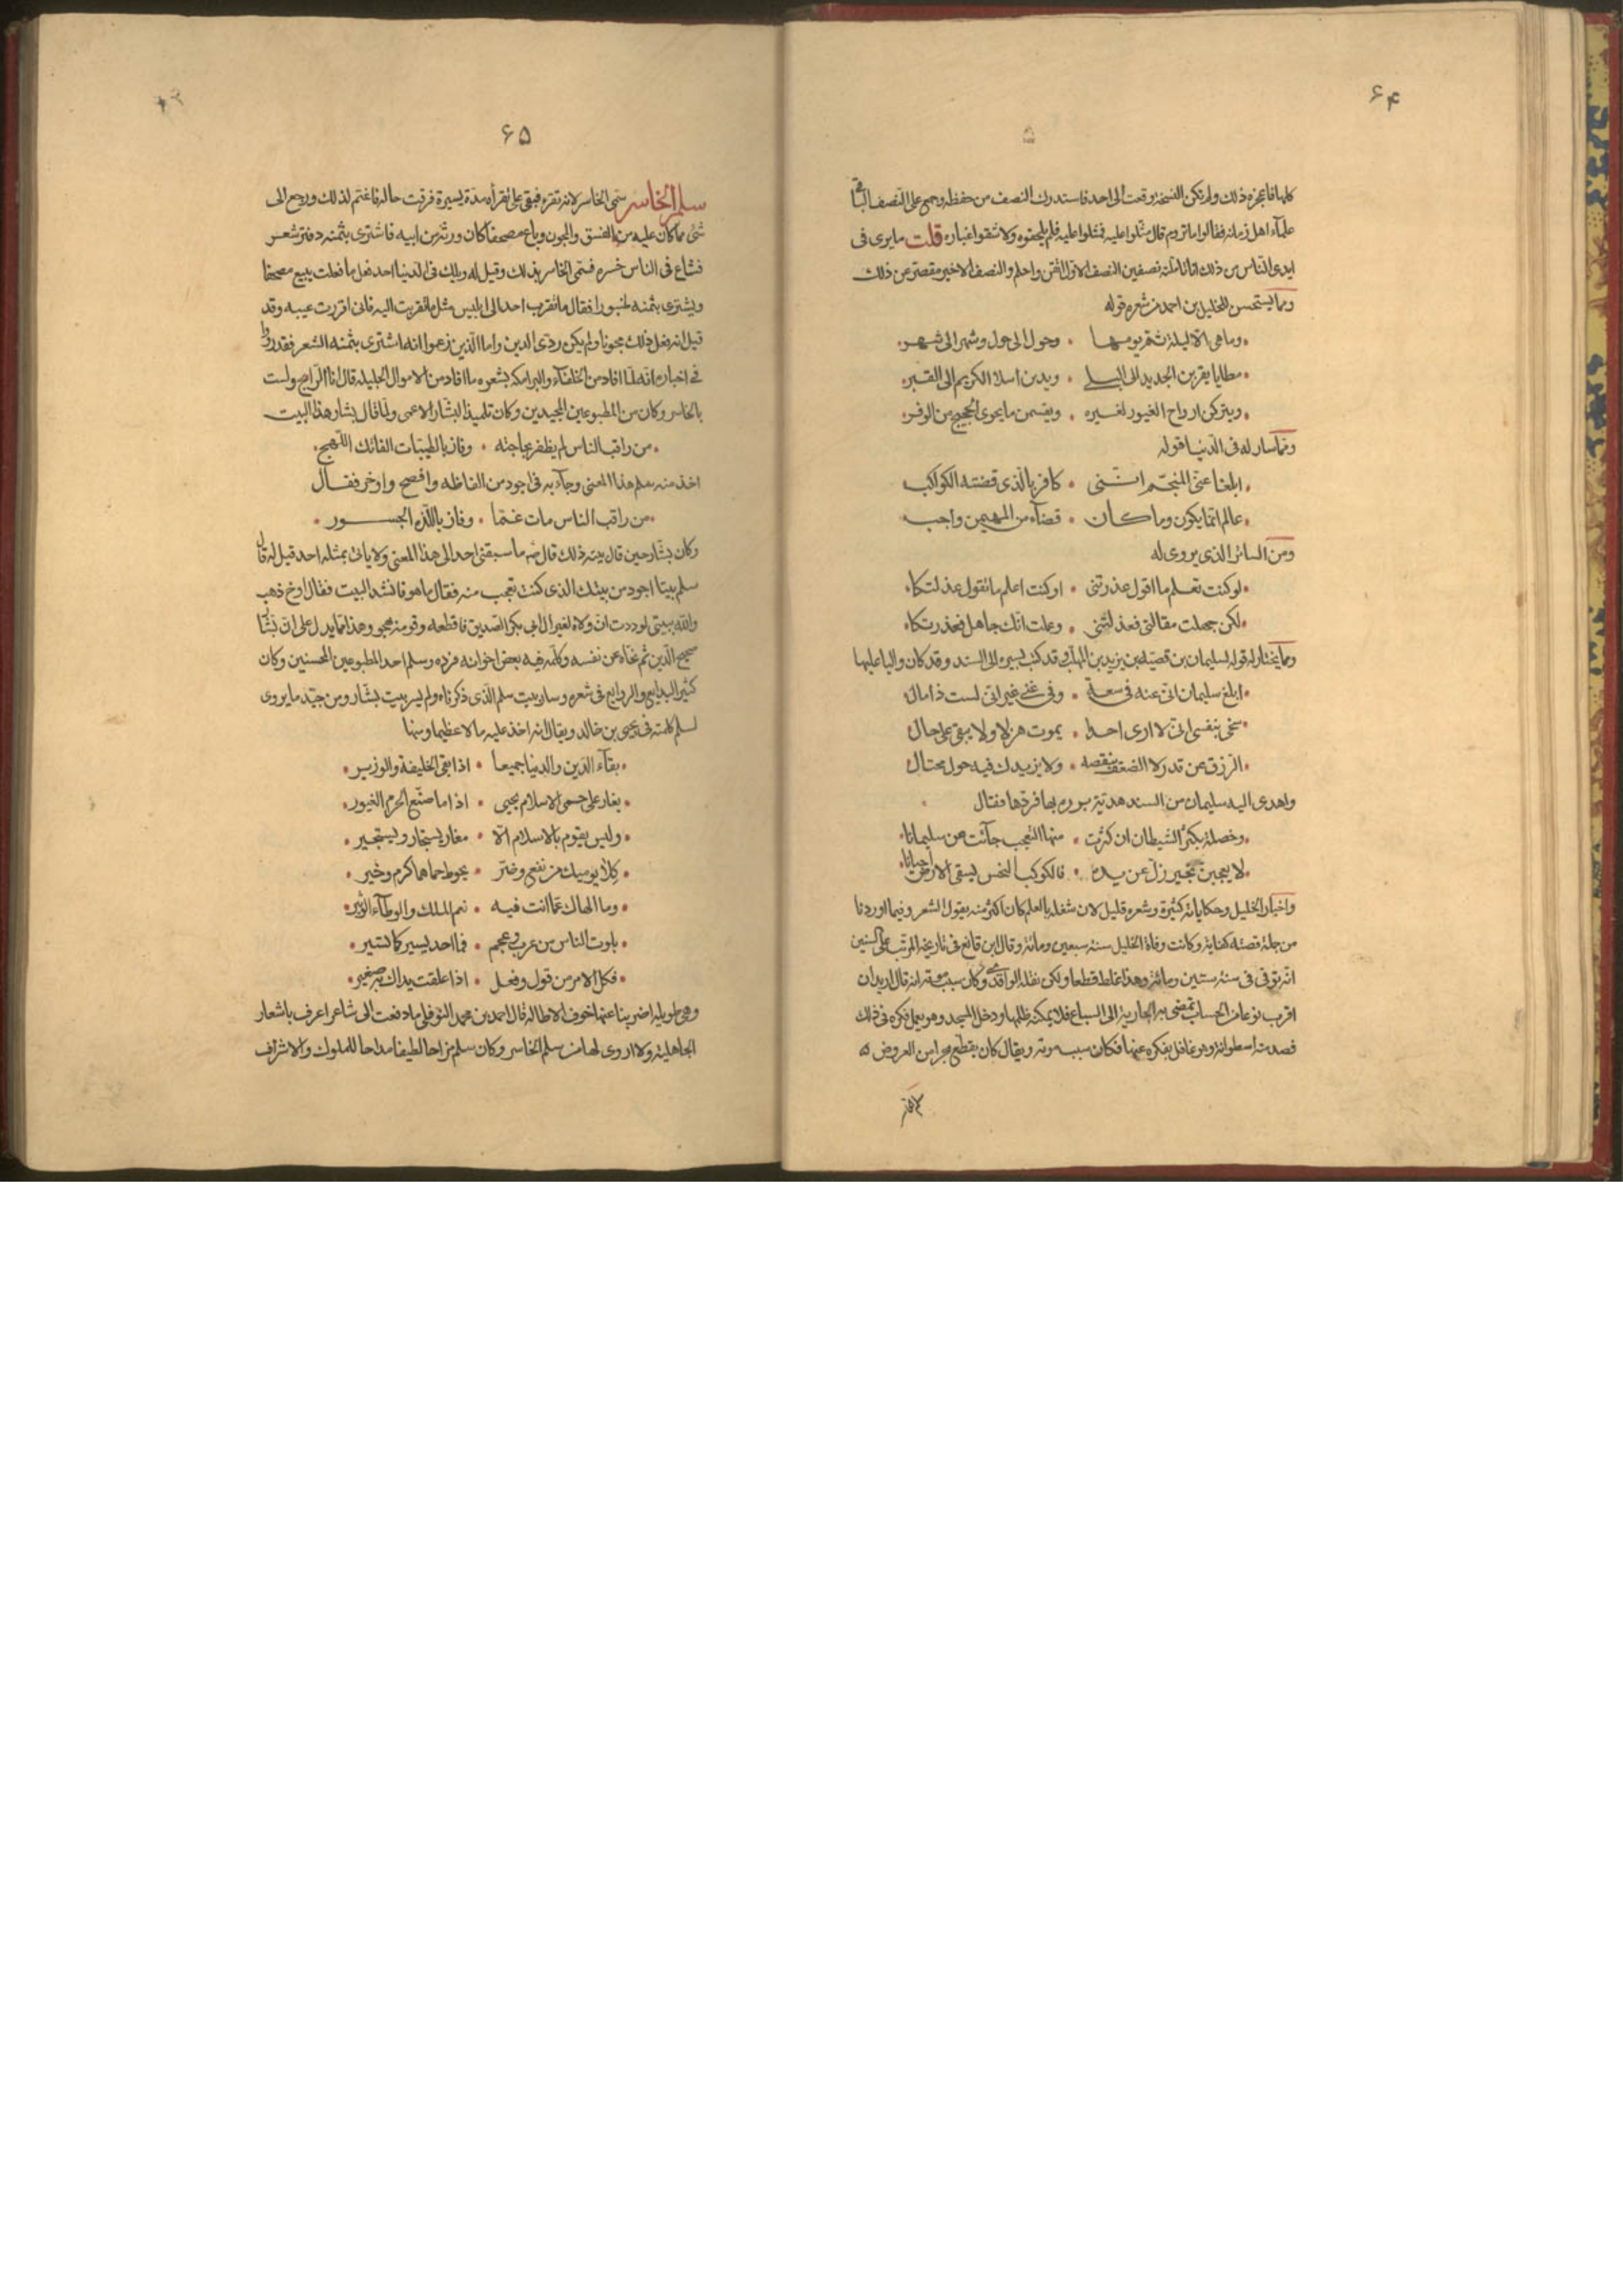 ۶۴
كلها فاعجزه ذلك ولم تكن النسخة وقعت الى احد فاستدرك النصف من حفظه وجمع على النصف الباقى
علمآء اهل زمانه فقالوا ما تروم قال مثلوا عليه فمثلوا عليه فلم يلحقوه ولا شقوا غباره قلت ما يرى فى
ايدى الناس من ذلك اذا تاملته نصفين النصف الاول اتقن واحلم والنصف الاخير مقصر عن ذلك
ومما يستحسن للخليل بن احمد من شعره قوله
وما هى الا ليلة ثم يومها • وحول الى حول وشهر الى شهر
مطايا يقربن الجديد الى البلى • ويدنين اسلاء الكريم الى القبر
ويتركن ازواج الغيور لغيره • ويقسمن ما يحوى الشحيح من الوفر
ومما سار له فى الدنيا قوله
ابلغا عنى المنجم اننى • كافر بالذى قضته الكواكب
عالم انما يكون وما كان • قضآء من المهيمن واجب
ومن السائر الذى يروى له
لو كنت تعلم ما اقول عذرتنى • او كنت اعلم ما تقول عذلتكا
لكن جهلت مقالتى فعذلتنى • وعلمت انك جاهل فعذرتكا
ومما يختار له قوله لسليمان بن قصيه بن يزيد بن المهلب وقد كتب يسيره الى السند وقد كان واليا عليها
ابلغ سليمان انى عنه فى سعة • وفى غنى غير انى لست ذا مال
سخى بنفسى انى لا ارى احدا • يموت هزلا ولا يبقى على حال
الرزق عن قدر لا الضعف ينقصه • ولا يزيدك فيه حول محتال
واهدى اليه سليمان من السند هدية برم بها فردها فقال
وخصلة يكثر الشيطان ان ذكرت • منها التعجب جآئت من سليمانا
لا يعجبن بخير زل عن يده • فالكوكب النحس يسقى الارض احيانا
واخبار الخليل وحكاياته كثيرة وشعره قليل لان شغله بالعلم كان اكثر منه بقول الشعر وفيما اوردنا
من جملة قصته كفاية وكانت وفاة الخليل سنة سبعين ومائة وقال ابن قانع فى تاريخه المرتب على السنين
انه توفى فى سنة ستين ومائة وهذا غلط قطعا ولكن نقله الواقدى وكان سبب موته انه قال اريد ان
اقرب نوعا من الحساب تمضى به الجارية الى البياع فلا يمكنه ظلمها ودخل المسجد وهو يعمل فكره فى ذلك
فصدمته اسطوانة وهو غافل بفكره عنها فكان سبب موته ويقال كان يقطع بحرا من العروض ه
۶۵
سلم الخاسر سمى الخاسر لانه تقرء فبقى على تقرأه مدة يسيرة فرقت حاله فاغتم لذلك ورجع الى
شئ مما كان عليه من الفسق والمجون وباع مصحفا كان ورثه من ابيه فاشترى بثمنه دفتر شعر
فشاع فى الناس خبره فسمى الخاسر بذلك وقيل له ويلك فى الدنيا احد فعل ما فعلت يبيع مصحفا
ويشترى بثمنه طنبورا فقال ما تقرب احد الى ابليس مثل ما تقربت اليه فانى اقررت عينه وقد
قيل انه فعل ذلك مجونا ولم يكن ردى الدين واما الذين زعموا انه اشترى بثمنه الشعر فقد رووا
فى اخباره انه لما افاد من الخلفآء والبرامكة بشعره ما افاد من الاموال الجليلة قال انا الرابح ولست
بالخاسر وكان من المطبوعين المجيدين وكان تلميذا لبشار الاعمى ولما قال بشار هذا البيت
من راقب الناس لم يظفر بحاجته • وفاز بالطيبات الفاتك اللهج
اخذ منه سلم هذا المعنى وجآء به فى اجود من الفاظه وافصح واوخر فقال
من راقب الناس مات غما • وفاز باللذه الجسور
وكان بشار حين قال بيته ذلك قال ما سبقنى احد الى هذا المعنى ولا ياتى بمثله احد قيل له قال
سلم بيتا اجود من بيتك الذى كنت تعجب منه فقال ما هو فانشد البيت فقال اوخ ذهب
والله بيتى لوددت ان ولاه لغير ال ابى بكر الصديق فاقطعه وقومه بهجو وهذا مما يدل على ان بشار
صحيح الدين ثم نفاه عن نفسه وكلمه فيه بعض اخوانه فرده وسلم احد المطبوعين المحسنين وكان
كثير البدايع والروايع فى شعره وسار بيت سلم الذى ذكرناه ولم يسر بيت بشار ومن جيد ما يروى
لسلم كلمته فى يحيى بن خالد ويقال انه اخذ عليه مالا عظيما ومنها
بقآء الدين والدنيا جميعا • اذا بقى الخليفة والوزير
يغار على حمى الاسلام يحيى • اذا ما ضيع الحرم الغيور
وليس يقوم بالاسلام الا • مغار يستجار ويستجير
كلا يوميك من نفع وضر • يحوط حماهما كرم وخير
وما الهاك عما انت فيه • نعم الملك والوطآء الوثير
بلوت الناس من عرب وعجم • فما احد يسير كما تسير
فكل الامر من قول وفعل • اذا علقت يداك به صغير
وهى طويلة اضربنا عنها خوف الاطالة قال احمد بن محمد النوفلى ما دفعت الى شاعر اعرف باشعار
الجاهلية ولا اروى لها من سلم الخاسر وكان سلم مزاحا لطيفا مداحا للملوك والاشراف